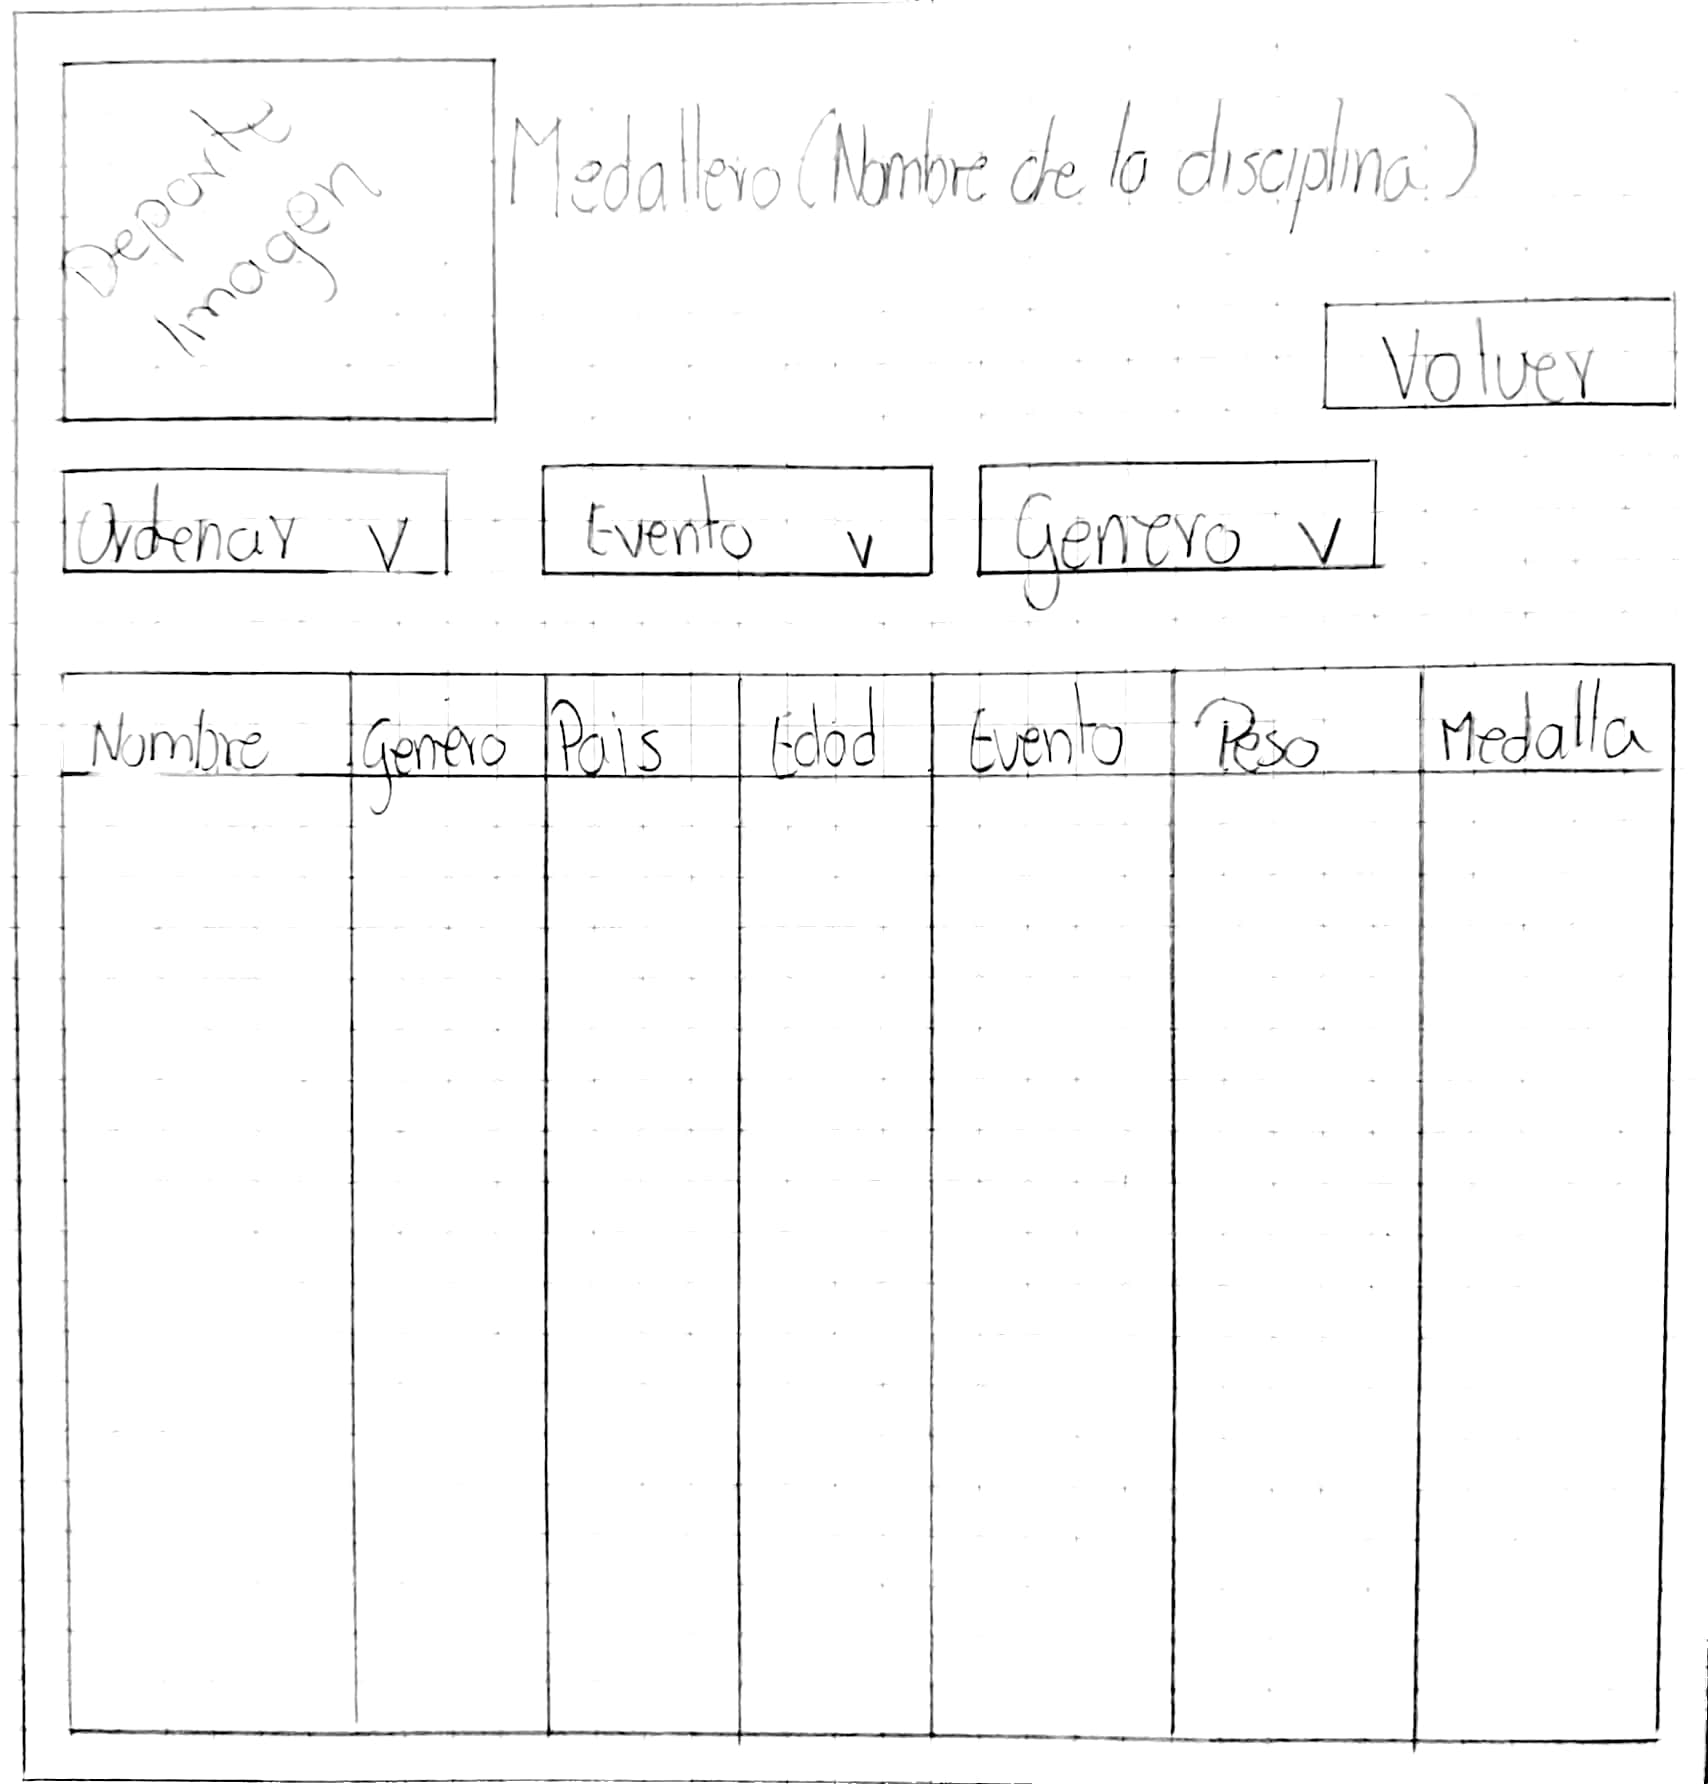 Deporte
Imagen
Medallero (Nombre de la disciplina)
Volver
Ordenar v
Evento v
Genero v
Nombre Genero Pais Edad Evento Peso Medalla